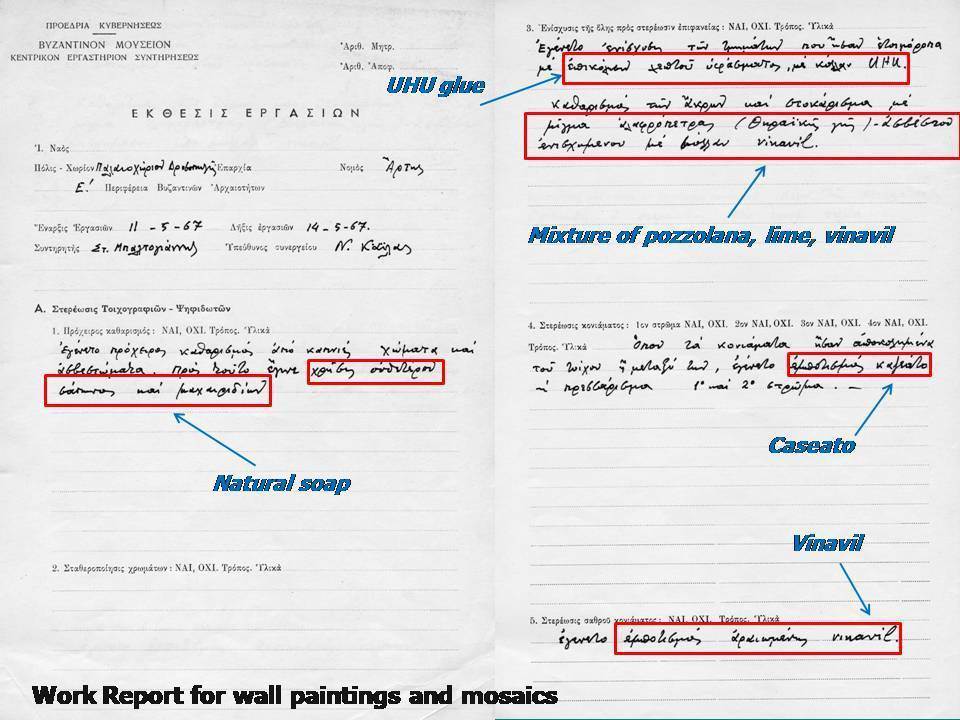 ΠΡΟΕΔΡΙΑ ΚΥΒΕΡΝΗΣΕΩΣ
ΒΥΖΑΝΤΙΝΟΝ ΜΟΥΣΕΙΟΝ
ΚΕΝΤΡΙΚΟΝ ΕΡΓΑΣΤΗΡΙΟΝ ΣΥΝΤΗΡΗΣΕΩΣ
Ἀριθ. Μητρ.
Ἀριθ. Ἀποφ.
ΕΚΘΕΣΙΣ ΕΡΓΑΣΙΩΝ
Ἱ. Ναὸς
Πόλις - Χωρίον Παλαιοχώριον Ἐπαρχία Νομὸς Ἄρτης
Ε.' Περιφέρεια Βυζαντινῶν Ἀρχαιοτήτων
Ἔναρξις Ἐργασιῶν 11 - 5 - 67 Λῆξις ἐργασιῶν 14 - 5 - 67.
Συντηρητὴς Στ. Μπαλτογιάννης Ὑπεύθυνος συνεργείου Ν.
Α. Στερέωσις Τοιχογραφιῶν - Ψηφιδωτῶν
1. Πρόχειρος καθαρισμός : ΝΑΙ, ΟΧΙ. Τρόπος. Ὑλικὰ
Ἐγένετο πρόχειρος καθαρισμός ἀπό καπνιές χώματα καί
ἀσβεστώματα. πρός τοῦτο ἔγινε χρῆσις οὐδετέρου
σάπωνος καί μαχαιριδίων
Natural soap
2. Σταθεροποίησις χρωμάτων : ΝΑΙ, ΟΧΙ. Τρόπος. Ὑλικὰ
Work Report for wall paintings and mosaics
3. Ἐνίσχυσις τῆς ὅλης πρὸς στερέωσιν ἐπιφανείας : ΝΑΙ, ΟΧΙ. Τρόπος. Ὑλικὰ
Ἐγένετο ἐνίσχυσις τῶν τμημάτων πού ἦσαν ἑτοιμόρροπα
μέ ἐπικόλησιν λεπτοῦ ὑφάσματος, μέ κόλλαν UHU.
UHU glue
καθαρισμός τῶν ἄκρων καί στοκάρισμα μέ
μῖγμα ἐλαφρόπετρας (Θηραϊκῆς γῆς) - ἀσβέστου
ἐνισχυμένου μέ κόλλαν vinavil.
Mixture of pozzolana, lime, vinavil
4. Στερέωσις κονιάματος : 1ον στρῶμα ΝΑΙ, ΟΧΙ. 2ον ΝΑΙ, ΟΧΙ. 3ον ΝΑΙ, ΟΧΙ. 4ον ΝΑΙ, ΟΧΙ.
Τρόπος. Ὑλικὰ Ὅπου τά κονιάματα ἦσαν ἀποκολλημένα
τοῦ τοίχου ἤ μεταξύ των, ἐγένετο ἐμποτισμός καζεάτο
πρεσσάρισμα 1ον καί 2ον στρῶμα. -
Caseato
Vinavil
5. Στερέωσις σαθροῦ κονιάματος : ΝΑΙ, ΟΧΙ. Τρόπος. Ὑλικὰ
ἐγένετο ἐμποτισμός ἀραιωμένης vinavil.